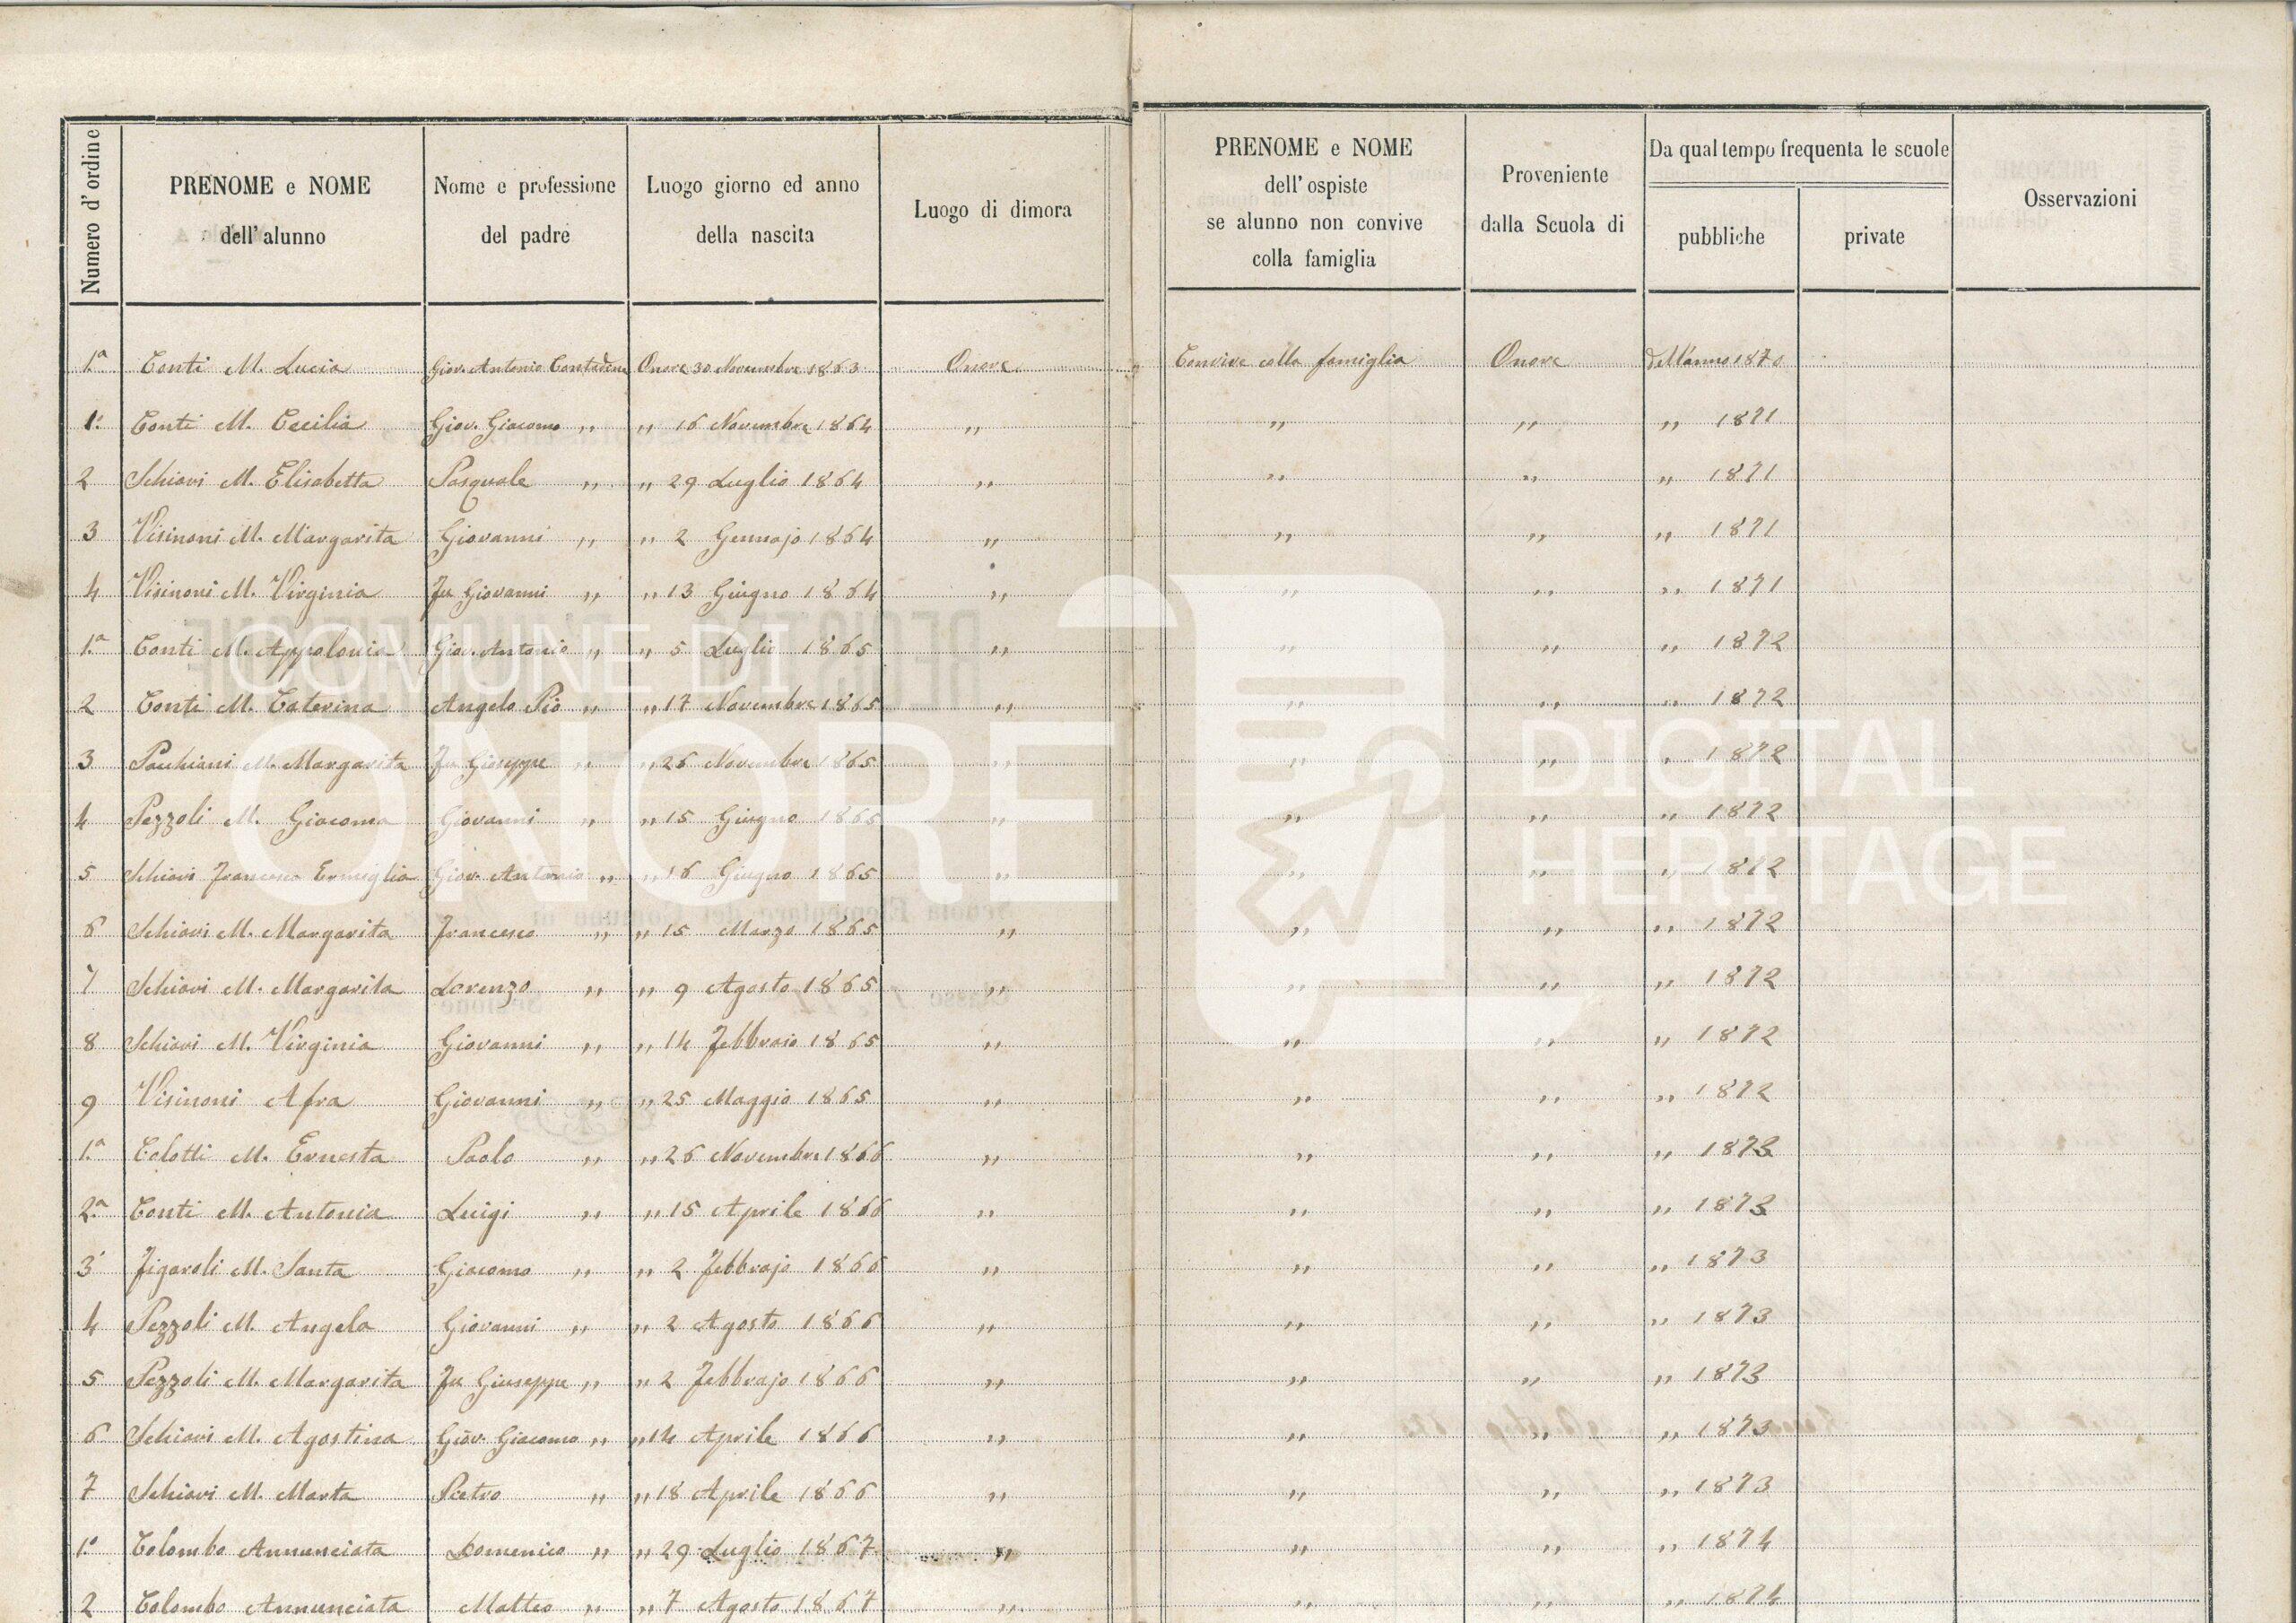 Numero d'ordine
PRENOME e NOME
dell'alunno
Nome e professione
del padre
Luogo giorno ed anno
della nascita
Luogo di dimora
PRENOME e NOME
dell'ospiste
se alunno non convive
colla famiglia
Proveniente
dalla Scuola di
Da qual tempo frequenta le scuole
pubbliche
private
Osservazioni
1ª Conti M. Lucia Giov. Antonio Contadino Onore 30 Novembre 1863 Onore Convive colla famiglia Onore Dall'anno 1870
1. Conti M. Cecilia Giov. Giacomo „ „ 16 Novembre 1864 „ „ „ „ 1871
2 Schiavi M. Elisabetta Pasquale „ „ 29 Luglio 1864 „ „ „ „ 1871
3 Visinoni M. Margarita Giovanni „ „ 2 Gennajo 1864 „ „ „ „ 1871
4 Visinoni M. Virginia Fu Giovanni „ „ 13 Giugno 1864 „ „ „ „ 1871
1ª Conti M. Appolonia Giov. Antonio „ „ 5 Luglio 1865 „ „ „ „ 1872
2 Conti M. Caterina Angelo Pio „ „ 17 Novembre 1865 „ „ „ „ 1872
3 Pacchiani M. Margarita Fu Giuseppe „ „ 26 Novembre 1865 „ „ „ „ 1872
4 Pezzoli M. Giacoma Giovanni „ „ 15 Giugno 1865 „ „ „ „ 1872
5 Schiavi Francesca Ermiglia Giov. Antonio „ „ 16 Giugno 1865 „ „ „ „ 1872
6 Schiavi M. Margarita Francesco „ „ 15 Marzo 1865 „ „ „ „ 1872
7 Schiavi M. Margarita Lorenzo „ „ 9 Agosto 1865 „ „ „ „ 1872
8 Schiavi M. Virginia Giovanni „ „ 14 Febbraio 1865 „ „ „ „ 1872
9 Visinoni Afra Giovanni „ „ 25 Maggio 1865 „ „ „ „ 1872
1ª Colotti M. Ernesta Paolo „ „ 26 Novembre 1866 „ „ „ „ 1873
2ª Conti M. Antonia Luigi „ „ 15 Aprile 1866 „ „ „ „ 1873
3 Figaroli M. Santa Giacomo „ „ 2 Febbrajo 1866 „ „ „ „ 1873
4 Pezzoli M. Angela Giovanni „ „ 2 Agosto 1866 „ „ „ „ 1873
5 Pezzoli M. Margarita Fu Giuseppe „ „ 2 Febbrajo 1866 „ „ „ „ 1873
6 Schiavi M. Agostina Giov. Giacomo „ „ 14 Aprile 1866 „ „ „ „ 1873
7 Schiavi M. Marta Pietro „ „ 18 Aprile 1866 „ „ „ „ 1873
1ª Colombo Annunciata Domenico „ „ 29 Luglio 1867 „ „ „ „ 1874
2 Colombo Annunciata Matteo „ „ 7 Agosto 1867 „ „ „ „ 1874
COMUNE DI
ONORE
DIGITAL
HERITAGE